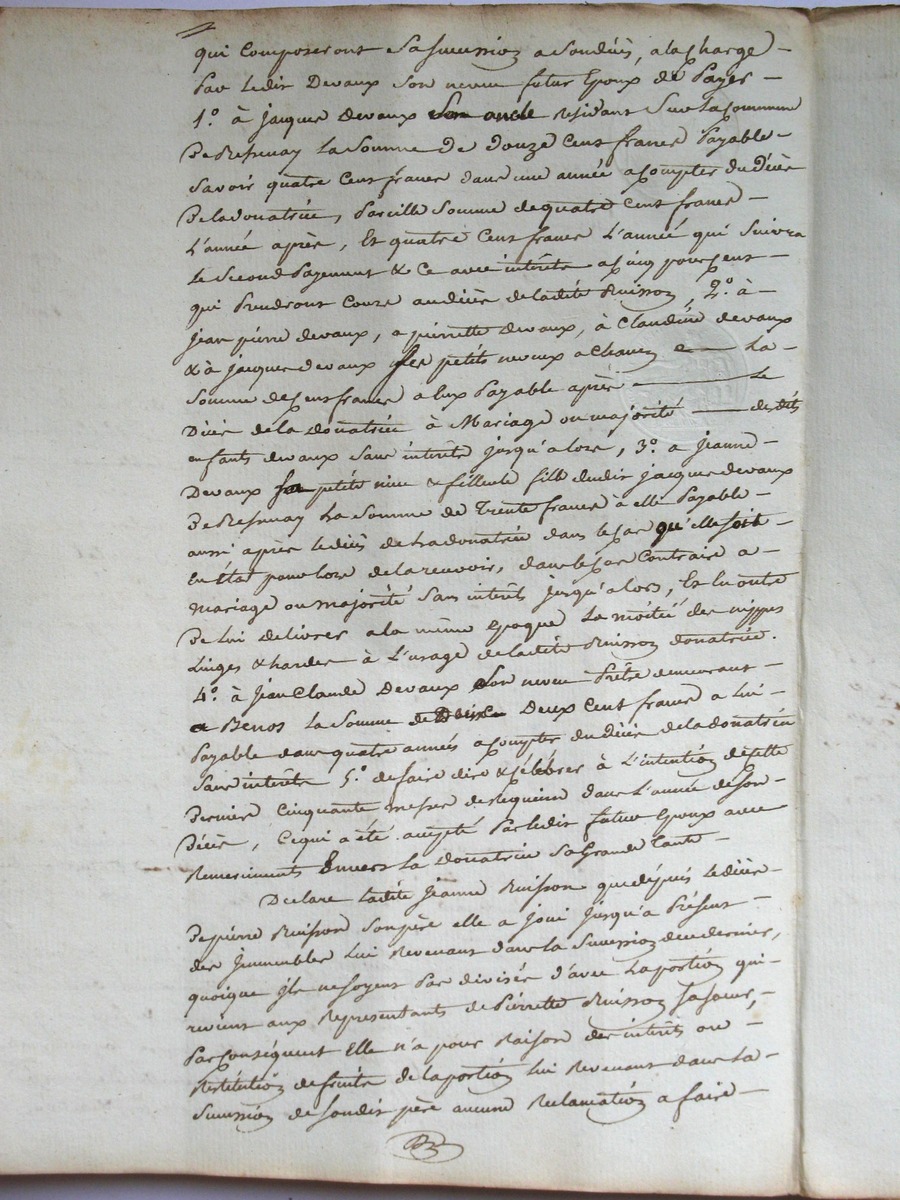 qui Composeront Sa succession a Son décès, a la Charge
Par Ledit Devaux Son neveu futur Epoux de Payer
1º. à jacques devaux Son oncle résidant Sur La Commune
De Ressenay La Somme De douze Cent francs Payable
Savoir quatre Cent francs dans une année a Compter du décès
De la donatrice, Pareille Somme de quatre Cent francs
L'année après, Et quatre Cent francs L'année qui Suivra
Le Second Payement & Ce avec intérêts a Cinq pour Cent
qui Prendront Cours au décès de la dite Ruisson, 2º. à
Jean pierre devaux, a pierrette devaux, à Claudine devaux
& à jacques devaux Ses petits neveux a Chacun La
Somme de Cent francs a Eux Payable après Le
Décès de la donatrice à Mariage ou majorité desdits
enfants devaux Sans intérêts jusqu'alors, 3º. a jeanne
Devaux Sa petite niece & filleule fille dudit jacques devaux
De Ressenay La Somme de Trente francs à elle Payable
aussi après le décès de La donatrice dans le Cas qu'elle soit
En état pour lors de la recevoir, dans le Cas Contraire a
Mariage ou majorité Sans intérêts jusqu'alors, Et En outre
De Lui delivrer a la même Epoque La moitié des nippes
Linges & hardes à L'usage de la dite Ruisson donatrice.
4º. à Jean Claude Devaux Son neveu Prêtre demeurant
a Benos La Somme de Deux Cent francs a Lui
Payable dans quatre années a Compter du décès de la donatrice
Sans intérêts 5º. de faire dire & Célébrer à L'intention de Cette
Dernier Cinquante messes de requiem dans L'année de Son
Décès, Ce qui a été accepté Par ledit futur Epoux avec
Remerciments Envers La donatrice Sa Grande Tante
Declare Ladite Jeanne Ruisson que depuis Le décès
De pierre Ruisson Son père elle a joui jusqu'a Présent
des Immeubles Lui Revenant dans la Succession de ce dernier,
quoique ils ne soyent Pas divisés d'avec La portion qui
revient aux Représentants de Pierrette Ruisson Sa Sœur,
Par Conséquent Elle n'a pour Raison des intérêts ou
Restitution de fruits de la portion Lui Revenant dans La
Succession de Son dit père aucune Reclamation a faire